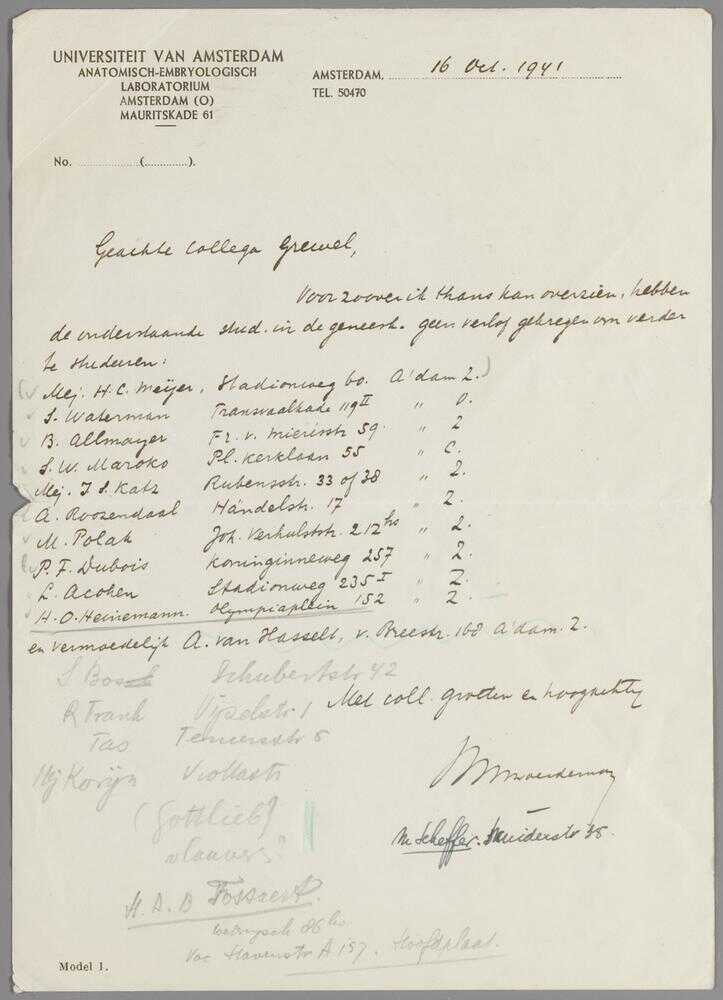 UNIVERSITEIT VAN AMSTERDAM
ANATOMISCH-EMBRYOLOGISCH
LABORATORIUM
AMSTERDAM (O)
MAURITSKADE 61
AMSTERDAM, 16 Oct. 1941
TEL. 50470
No. (............).
Geachte Collega Grewel,
Voor zoover ik thans kan overzien, hebben
de onderstaande stud. in de geneesk. geen verlof gekregen om verder
te studeeren:
(v Mej. H.C. Meijer, Stadionweg 60. A'dam Z.)
S. Waterman Transvaalkade 119 II " O.
B. Allmayer Fr. v. Mierisstr 59. " Z
S. W. Maroko Pl. Kerklaan 55 " C.
Mej. J S. Katz Rubensstr. 33 of 38 " Z.
A. Roozendaal Händelstr. 17 " Z.
M. Polak Joh. Verhulststr. 212 hs " Z.
P. F. Dubois Koninginneweg 257 " Z.
L. Acohen Stadionweg 235 I " Z.
H. O. Heinemann. Olympiaplein 152 " Z
en vermoedelijk A. van Hasselt, v. Breestr. 168 A'dam. Z.
S Bos Schubertstr 42
R Frank Vijzelstr 1
Met coll. groeten en hoogachting
Tas Teniersstr 5
Mej Korijn Viottastr
(Gottlieb)
M Scheffer. Muiderstr 38.
H. D. B
86 hs
Havenstr A 157. Hoofdplaat.
Model 1.